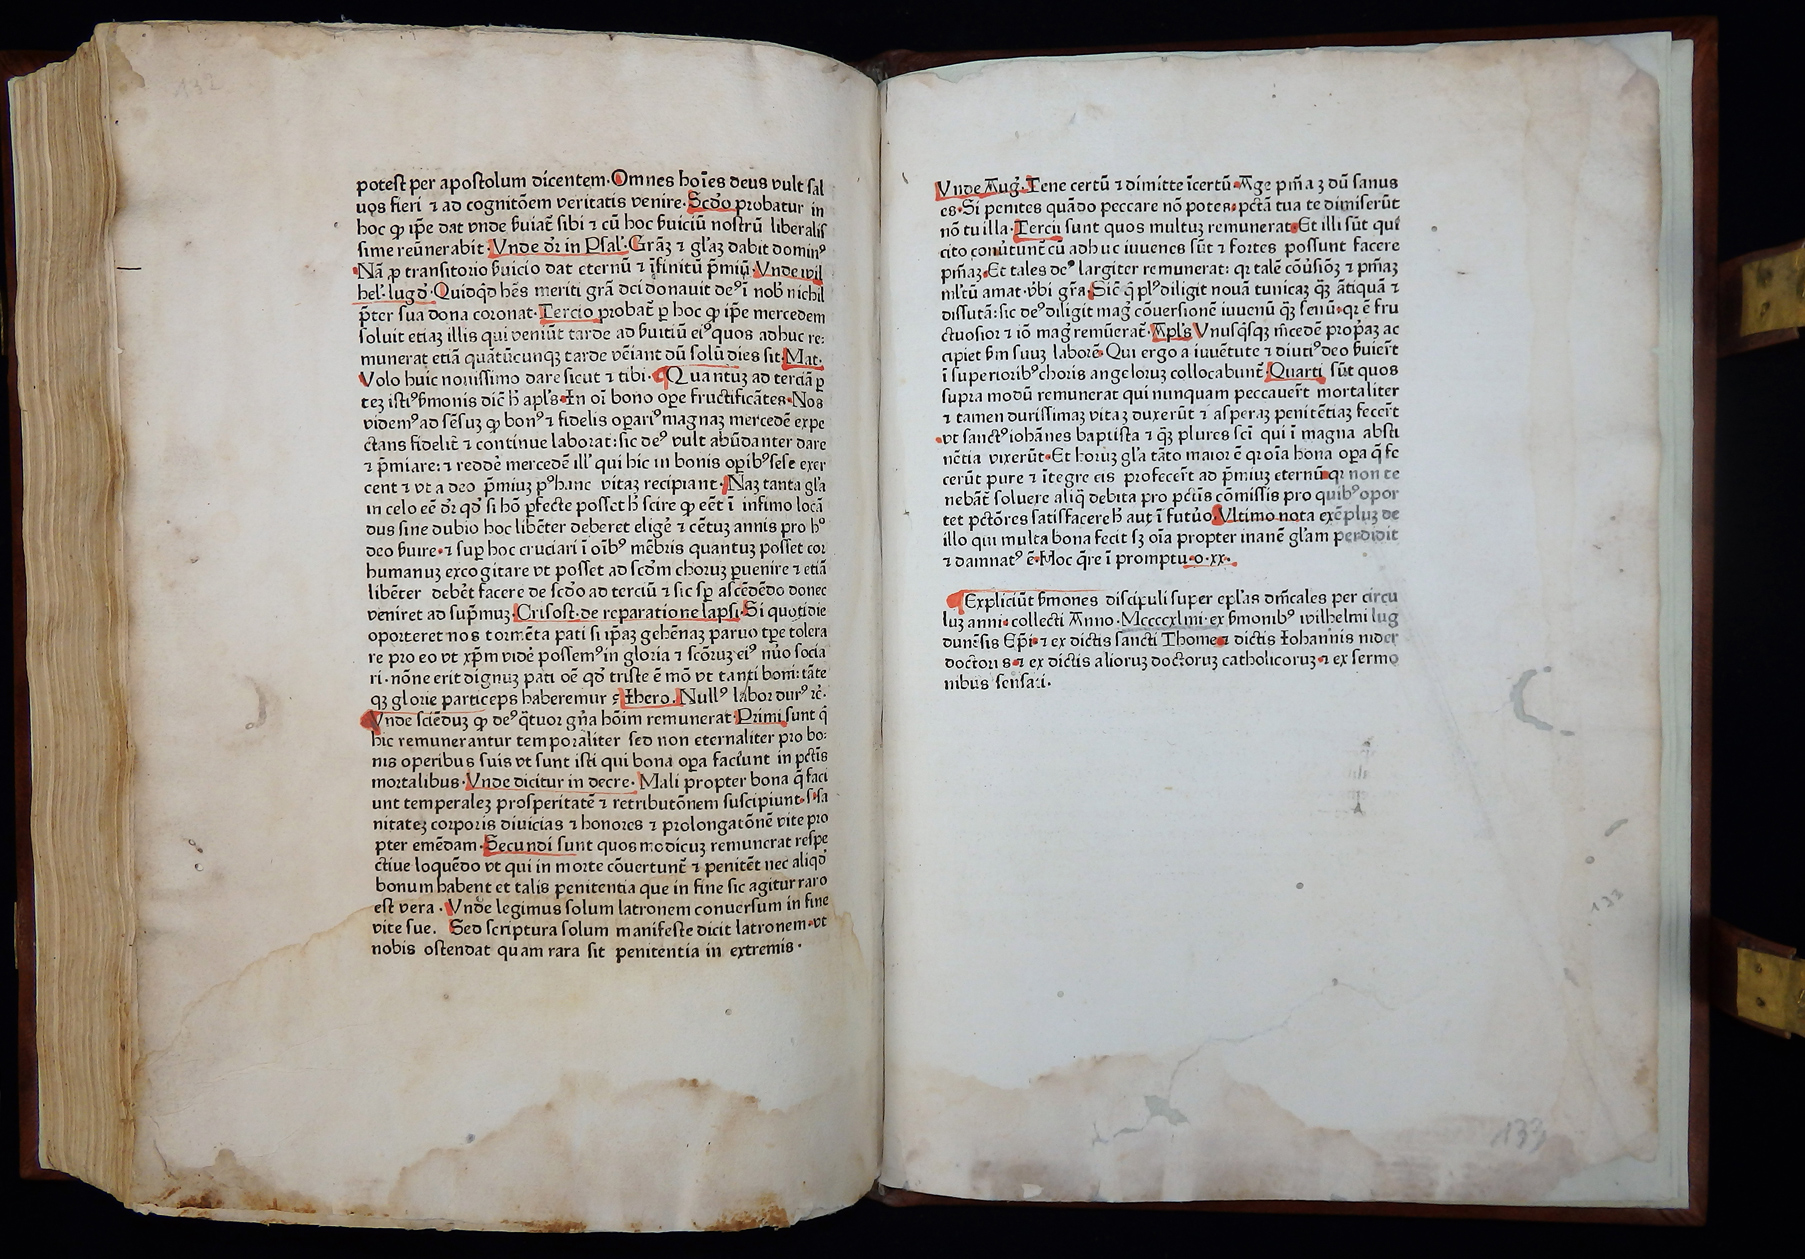 132
potest per apostolum dicentem. Omnes hoīes deus vult sal
uos fieri ⁊ ad cognitōem veritatis venire. Scdo probatur in
hoc ꝙ ip̄e dat vnde ẜuiat̄ sibi ⁊ cū hoc ẜuiciū nostrū liberalis
sime reūnerabit. Vnde dr̄ in Psal̓. Grāʒ ⁊ gl̓aʒ dabit dominꝰ
Nā ꝓ transitorio ẜuicio dat eternū ⁊ īfinitū p̄miū. Vnde wil
hel̓. lugd̓. Quidq̄d hēs meriti grā dei donauit deꝰ ī nob̓ nichil
p̄ter sua dona coronat. Tercio probat̄ ꝑ hoc ꝙ ip̄e mercedem
soluit etiaʒ illis qui veniūt tarde ad ẜuitiū eiꝰ quos adhuc re:
munerat etiā quātūcunqʒ tarde vēiant dū solū dies sit. Mat.
Volo huic nouissimo dare sicut ⁊ tibi. Quantuʒ ad terciā ꝑ
teʒ istiꝰ ẜmonis dic̄ h̄ apl̓s. In oī bono oꝑe fructificātes. Nos
videmꝰ ad sēsuʒ ꝙ bonꝰ ⁊ fidelis oꝑariꝰ magnaʒ mercedē expe
ctans fidelit̄ ⁊ continue laborat: sic deꝰ vult abūdanter dare
⁊ p̄miare: ⁊ redde̓ mercedē ill̓ qui hic in bonis oꝑibꝰ sese exer
cent ⁊ vt a deo p̄miuʒ pꝰ hanc vitaʒ recipiant. Naʒ tanta gl̓a
in celo eē dr̄ qd̓ si hō ꝑfecte posset h̄ scire ꝙ eēt ī infimo locā
dus sine dubio hoc libēter deberet elige̓ ⁊ cētuʒ annis pro hꝰ
deo ẜuire. ⁊ suꝑ hoc cruciari ī oībꝰ mēbris quantuʒ posset cor
humanuʒ excogitare vt posset ad scd̓m choruʒ ꝑuenire ⁊ etiā
libēter debe̓t facere de scd̓o ad terciū ⁊ sic sꝑ ascēdēdo donec
veniret ad sup̄muʒ. Crisost. de reparatione lapsi. Si quotidie
oporteret nos tormēta pati si ip̄aʒ gehēnaʒ paruo tp̄e tolera
re pro eo vt xp̄m vide̓ possemꝰ in gloria ⁊ scōruʒ eiꝰ nūo socia
ri. nōne erit dignuʒ pati oē qd̓ triste ē mō vt tanti boni: tāte
qʒ glorie particeps haberemur. Ihero. Nullꝰ labor durꝰ ⁊c̄.
Vnde sciēduʒ ꝙ deꝰ q̄tuor gn̄a hōim remunerat. Primi sunt q̄
hic remunerantur temporaliter sed non eternaliter pro bo:
nis operibus suis vt sunt isti qui bona oꝑa faciunt in pctīs
mortalibus. Vnde dicitur in decre. Mali propter bona q̄ faci
unt temporaleʒ prosperitatē ⁊ retributōnem suscipiunt. s. sa
nitateʒ corporis diuicias ⁊ honores ⁊ prolongatōnē vite pro
pter emēdam. Secundi sunt quos modicuʒ remunerat respe
ctiue loquēdo vt qui in morte cōuertunt̄ ⁊ penitēt nec aliqd̓
bonum habent et talis penitentia que in fine sic agitur raro
est vera. Vnde legimus solum latronem conuersum in fine
vite sue. Sed scriptura solum manifeste dicit latronem. vt
nobis ostendat quam rara sit penitentia in extremis.
Vnde Aug̓. Tene certū ⁊ dimitte īcertū. Age pn̄iaʒ dū sanus
es. Si penites quādo peccare nō potes. pctā tua te dimiserūt
nō tu illa. Tercii sunt quos multuʒ remunerat. Et illi sūt qui
cito conūtunt̄ cū adhuc iuuenes sūt ⁊ fortes possunt facere
pn̄iaʒ. Et tales deꝰ largiter remunerat: qr talē cōūsiōʒ ⁊ pn̄iaʒ
ml̓tū amat. vbi gr̄a. Sic̄ q̄ plꝰ diligit nouā tunicaʒ q̄ʒ ātiquā ⁊
dissutā: sic deꝰ diligit mag̓ cōuersionē iuuenū q̄ʒ senū. qr ē fru
ctuosior ⁊ iō mag̓ remūerat̄. Apl̓s Vnusq̄sqʒ m̄cedē prop̄aʒ ac
cipiet ẜm suuʒ laborē. Qui ergo a iuuētute ⁊ diutiꝰ deo ẜuier̄t
ī superioribꝰ choris angeloruʒ collocabunt̄. Quarti sūt quos
supra modū remunerat qui nunquam peccauer̄t mortaliter
⁊ tamen durissimaʒ vitaʒ duxerūt ⁊ asperaʒ penitētiaʒ fecer̄t
vt sanctꝰ iohānes baptista ⁊ q̄ʒ plures sci̓ qui ī magna absti
nētia vixerūt. Et horuʒ gl̓a tāto maior ē qr oīa bona oꝑa q̄ fe
cerūt pure ⁊ ītegre eis profecer̄t ad p̄miuʒ eternū. qr non te
nebāt̄ soluere aliq̄ debita pro pctīs cōmissis pro quibꝰ opor
tet pctōres satisfacere h̄ aut ī futūo. Vltimo nota exēpluʒ de
illo qui multa bona fecit sʒ oīa propter inanē gl̓am perdidit
⁊ damnatꝰ ē. Hoc q̄re ī promptu. o. xx.
Expliciūt ẜmones discipuli super epl̓as dn̄icales per circu
luʒ anni. collecti Anno. Mccccxliiii. ex ẜmonibꝰ wilhelmi lug
dunēsis Ep̄i. ⁊ ex dictis sancti Thome ⁊ dictis Iohannis nider
doctoris. ⁊ ex dictis alioruʒ doctoruʒ catholicoruʒ. ⁊ ex sermo
nibus sensati.
133
133